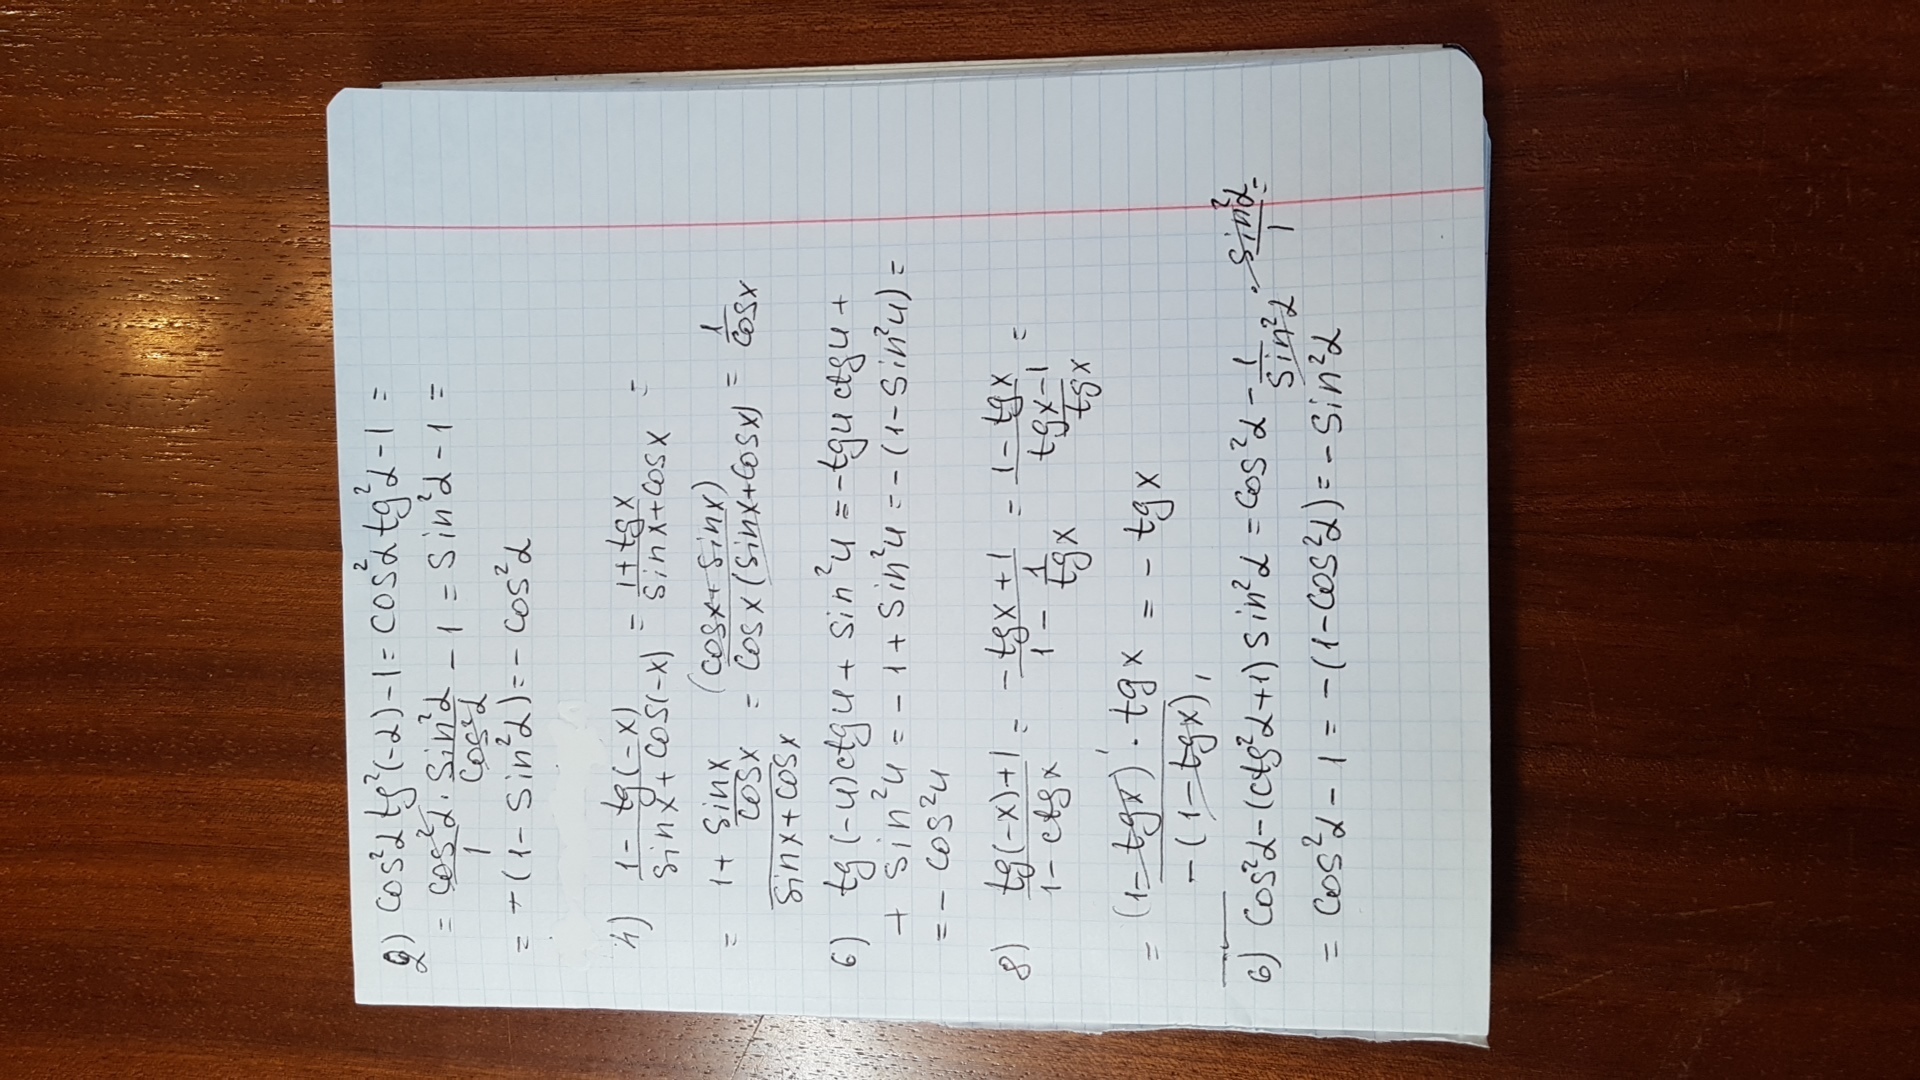 2) cos²α tg²(-α) - 1 = cos²α tg²α - 1 =
= cos²α/1 · sin²α/cos²α - 1 = sin²α - 1 =
= -(1 - sin²α) = - cos²α
4) (1 - tg(-x))/(sinx + cos(-x)) = (1 + tgx)/(sinx + cosx) =
= (1 + sinx/cosx)/(sinx + cosx) = (cosx + sinx)/(cosx (sinx + cosx)) = 1/cosx
6) tg(-u)ctgu + sin²u = -tgu ctgu +
+ sin²u = -1 + sin²u = -(1 - sin²u) =
= - cos²u
8) (tg(-x)+1)/(1 - ctgx) = (-tgx + 1)/(1 - 1/tgx) = (1 - tgx)/((tgx - 1)/tgx) =
= ((1 - tgx) · tgx)/(-(1 - tgx)) = - tgx
6) cos²α - (ctg²α + 1) sin²α = cos²α - 1/sin²α · sin²α/1 =
= cos²α - 1 = -(1 - cos²α) = - sin²α